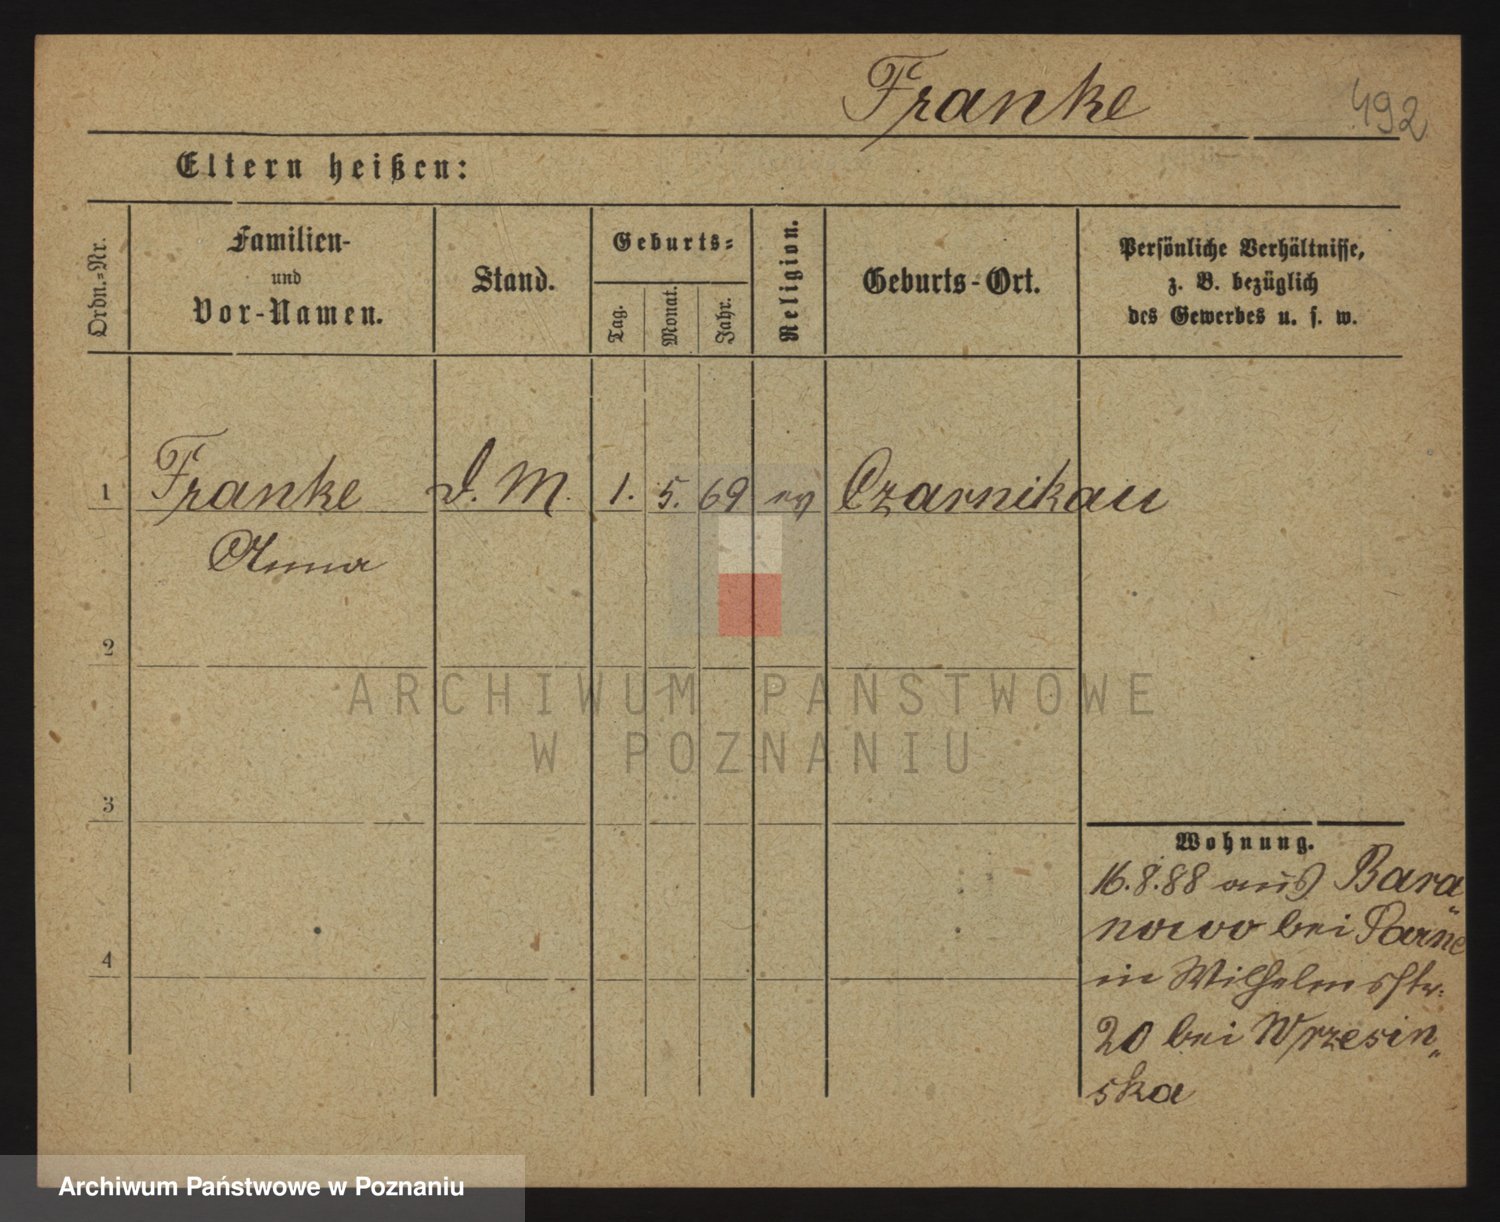 Franke 492
Eltern heißen:
Ordn.-Nr.
Familien-
und
Vor-Namen.
Stand.
Geburts-
Tag.
Monat.
Jahr.
Religion.
Geburts-Ort.
Persönliche Verhältnisse,
z. B. bezüglich
des Gewerbes u. s. w.
1 Franke D. M. 1. 5. 69 ev Czarnikau
Anna
2
ARCHIWUM PAŃSTWOWE
W POZNANIU
3
Wohnung.
16.8.88 aus Bara
nowo bei
4
in Wilhelmstr.
20 bei Wrzesin„
ska
Archiwum Państwowe w Poznaniu